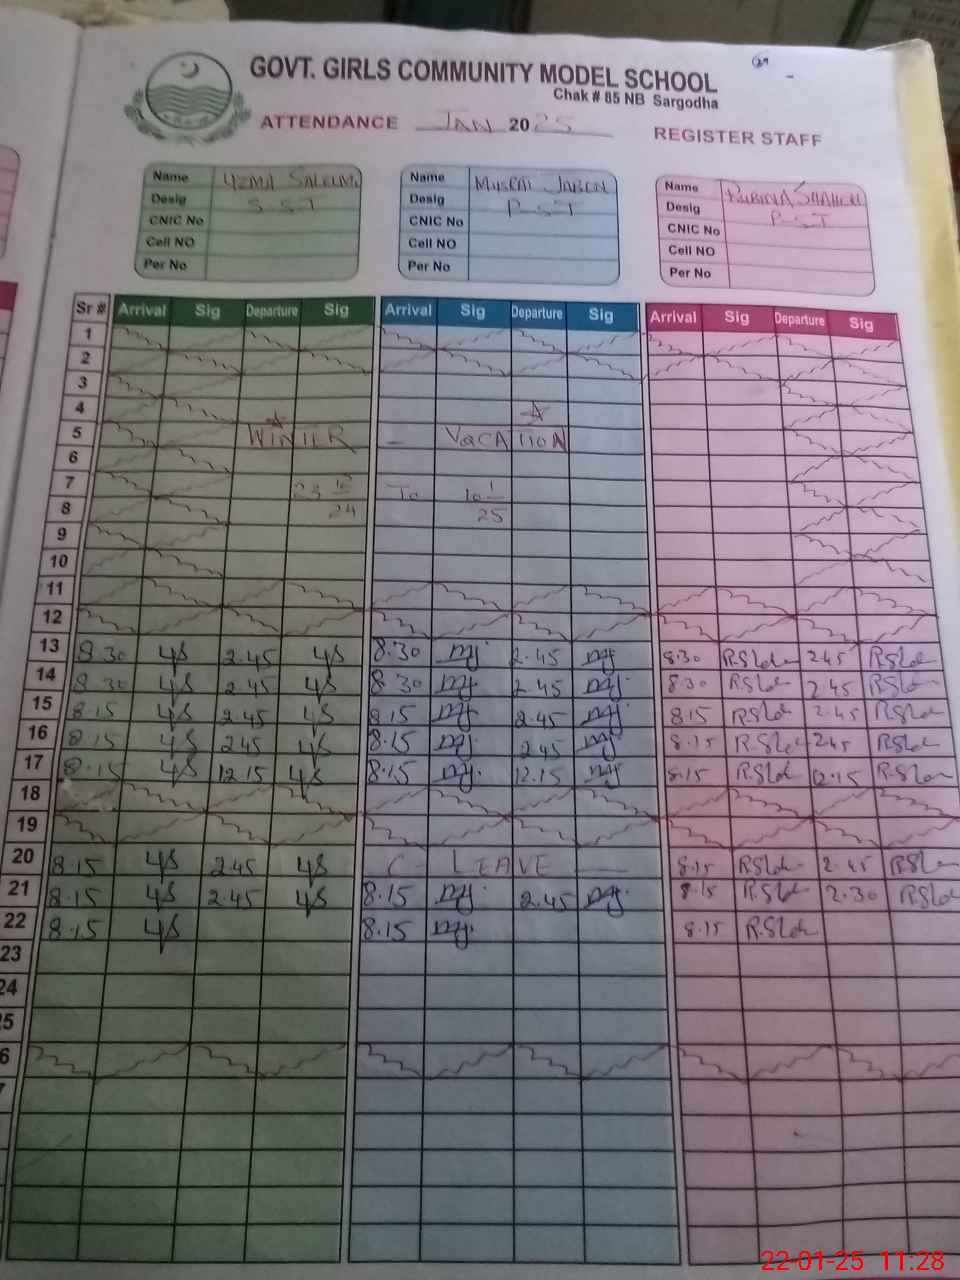 29
GOVT. GIRLS COMMUNITY MODEL SCHOOL
Chak # 85 NB Sargodha
ATTENDANCE JAN 2025 REGISTER STAFF
Name UZMA SALEEM Name Name RUBINA SHAHEEN
Desig S.S.T Desig P-ST Desig P-ST
CNIC No CNIC No CNIC No
Cell NO Cell NO Cell NO
Per No Per No Per No
Sr # Arrival Sig Departure Sig Arrival Sig Departure Sig Arrival Sig Departure Sig
1
2
3
4
5 WINTER - VaCATION
6
7 23 12 To 10 1
8 24 25
9
10
11
12
13 8.30 YS 2.45 YS 8.30 mj 2.45 mj 8.30 2.45
14 8.30 YS 2.45 YS 8.30 mj 2.45 mj 8.30 2.45
15 8.15 YS 2.45 YS 8.15 mj 2.45 mj 8.15 2.45
16 8.15 YS 2.45 YS 8.15 mj 2.45 mj 8.15 2.45
17 8.15 YS 12.15 YS 8.15 mj 12.15 mj 8.15 12.15
18
19
20 8.15 YS 2.45 YS C - LEAVE 8.15 2.45
21 8.15 YS 2.45 YS 8.15 mj 2.45 mj 8.15 2.30
22 8.15 YS 8.15 mj 8.15
23
24
25
6
7
22-01-25 11:28